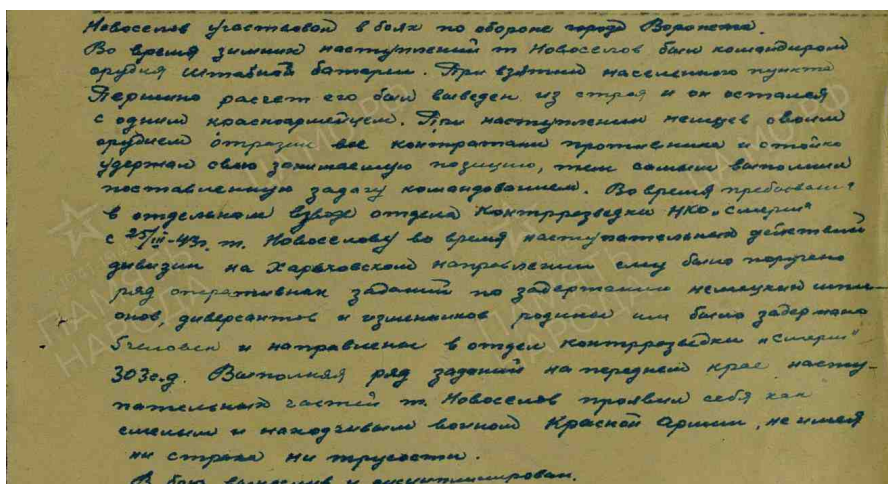 Новоселов участвовал в боях по обороне города Воронежа.
Во время зимних наступлений т. Новоселов был командиром
орудия штабной батареи. При взятии населенного пункта
Першино расчет его был выведен из строя и он остался
с одним красноармейцем. При наступлении немцев своим
орудием отразил все контратаки противника и стойко
удержал свою занимаемую позицию, тем самым выполнил
поставленную задачу командованием. Во время пребывания
в отдельном взводе отдела контрразведки НКО „Смерш"
с 25/III-43г. т. Новоселову во время наступательных действий
дивизии на Харьковском направлении ему было поручено
ряд оперативных заданий по задержанию немецких шпи-
онов, диверсантов и изменников родины им было задержано
6 человек и направлены в отдел контрразведки „Смерш"
303 с.д. Выполняя ряд заданий на переднем крае насту-
пательных частей т. Новоселов проявил себя как
смелым и находчивым воином Красной Армии, не имея
ни страха ни трусости.
В бою вынослив и дисциплинирован.
ПАМЯТЬ
НАРОДА
ПАМЯТЬ
НАРОДА